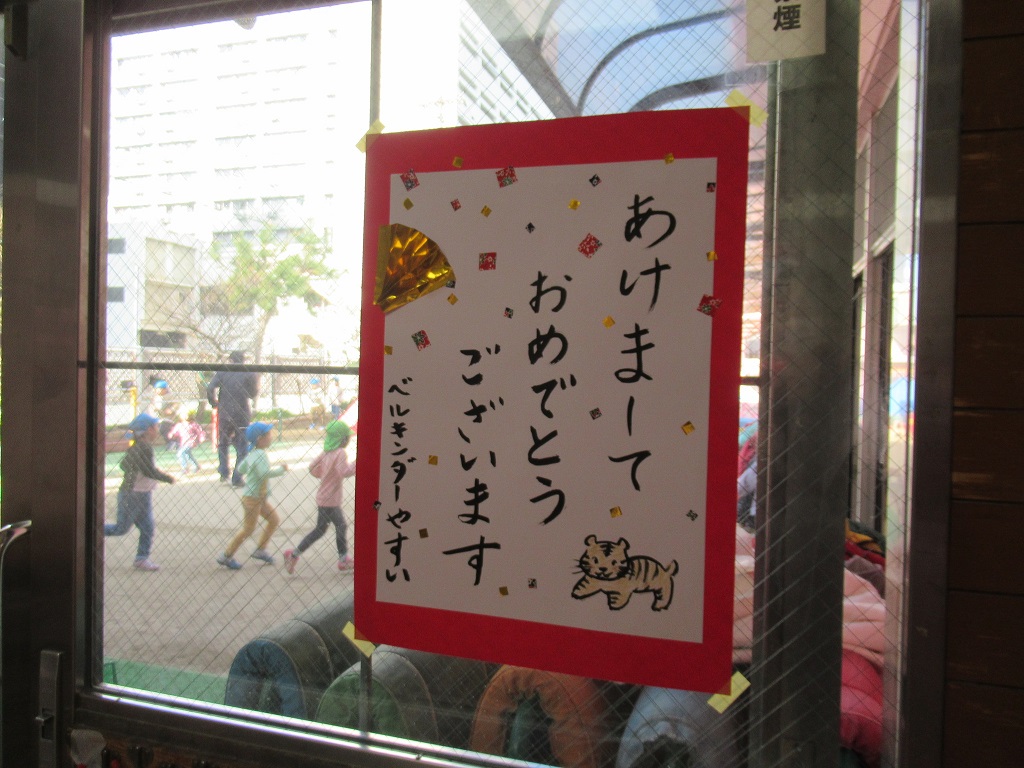 あけまして
おめでとう
ございます
ベルキンダーやすい
煙